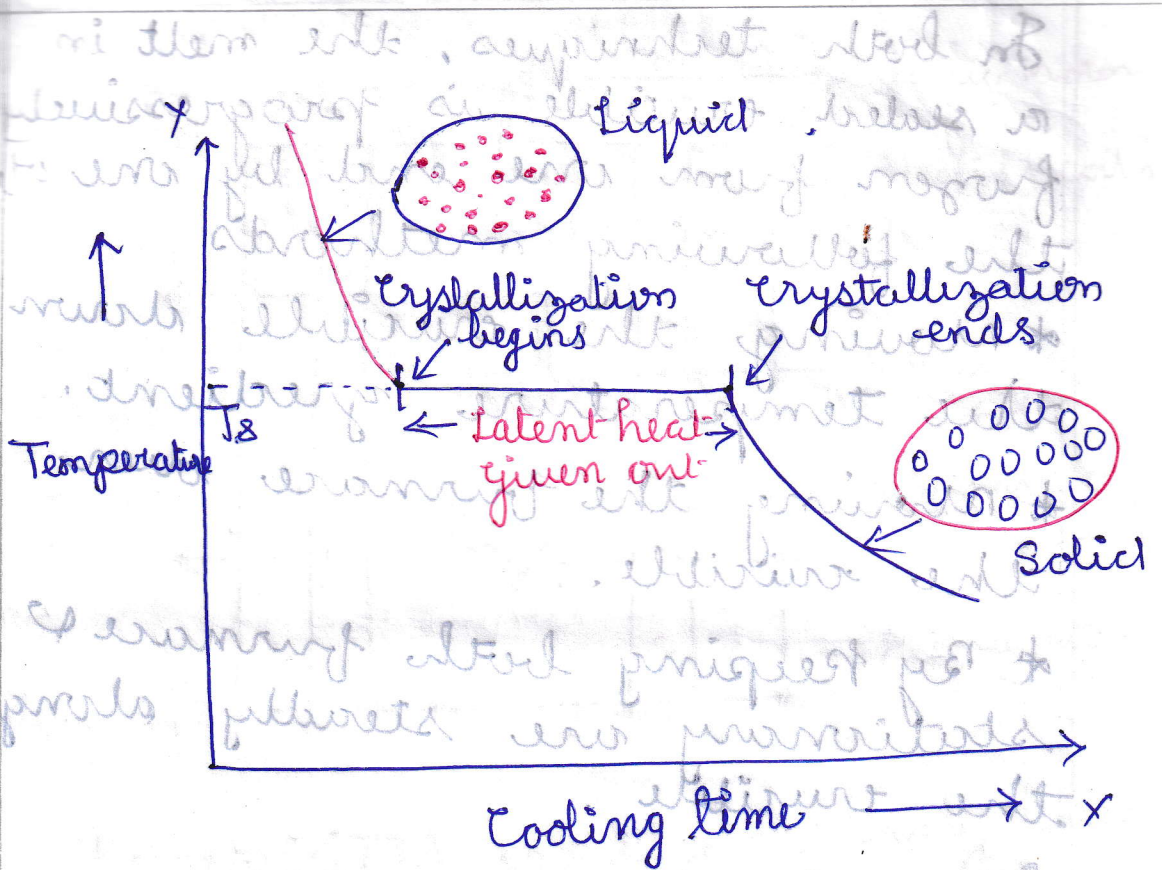 Y
Liquid
Crystallization
begins
Crystallization
ends
Ts
Temperature
Latent heat
given out
Solid
Cooling time
X